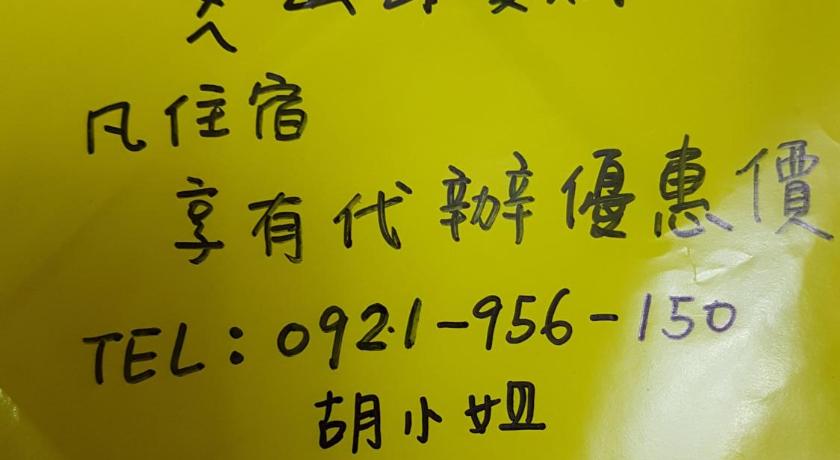 凡住宿
享有代辦優惠價
TEL:0921-956-150
胡小姐